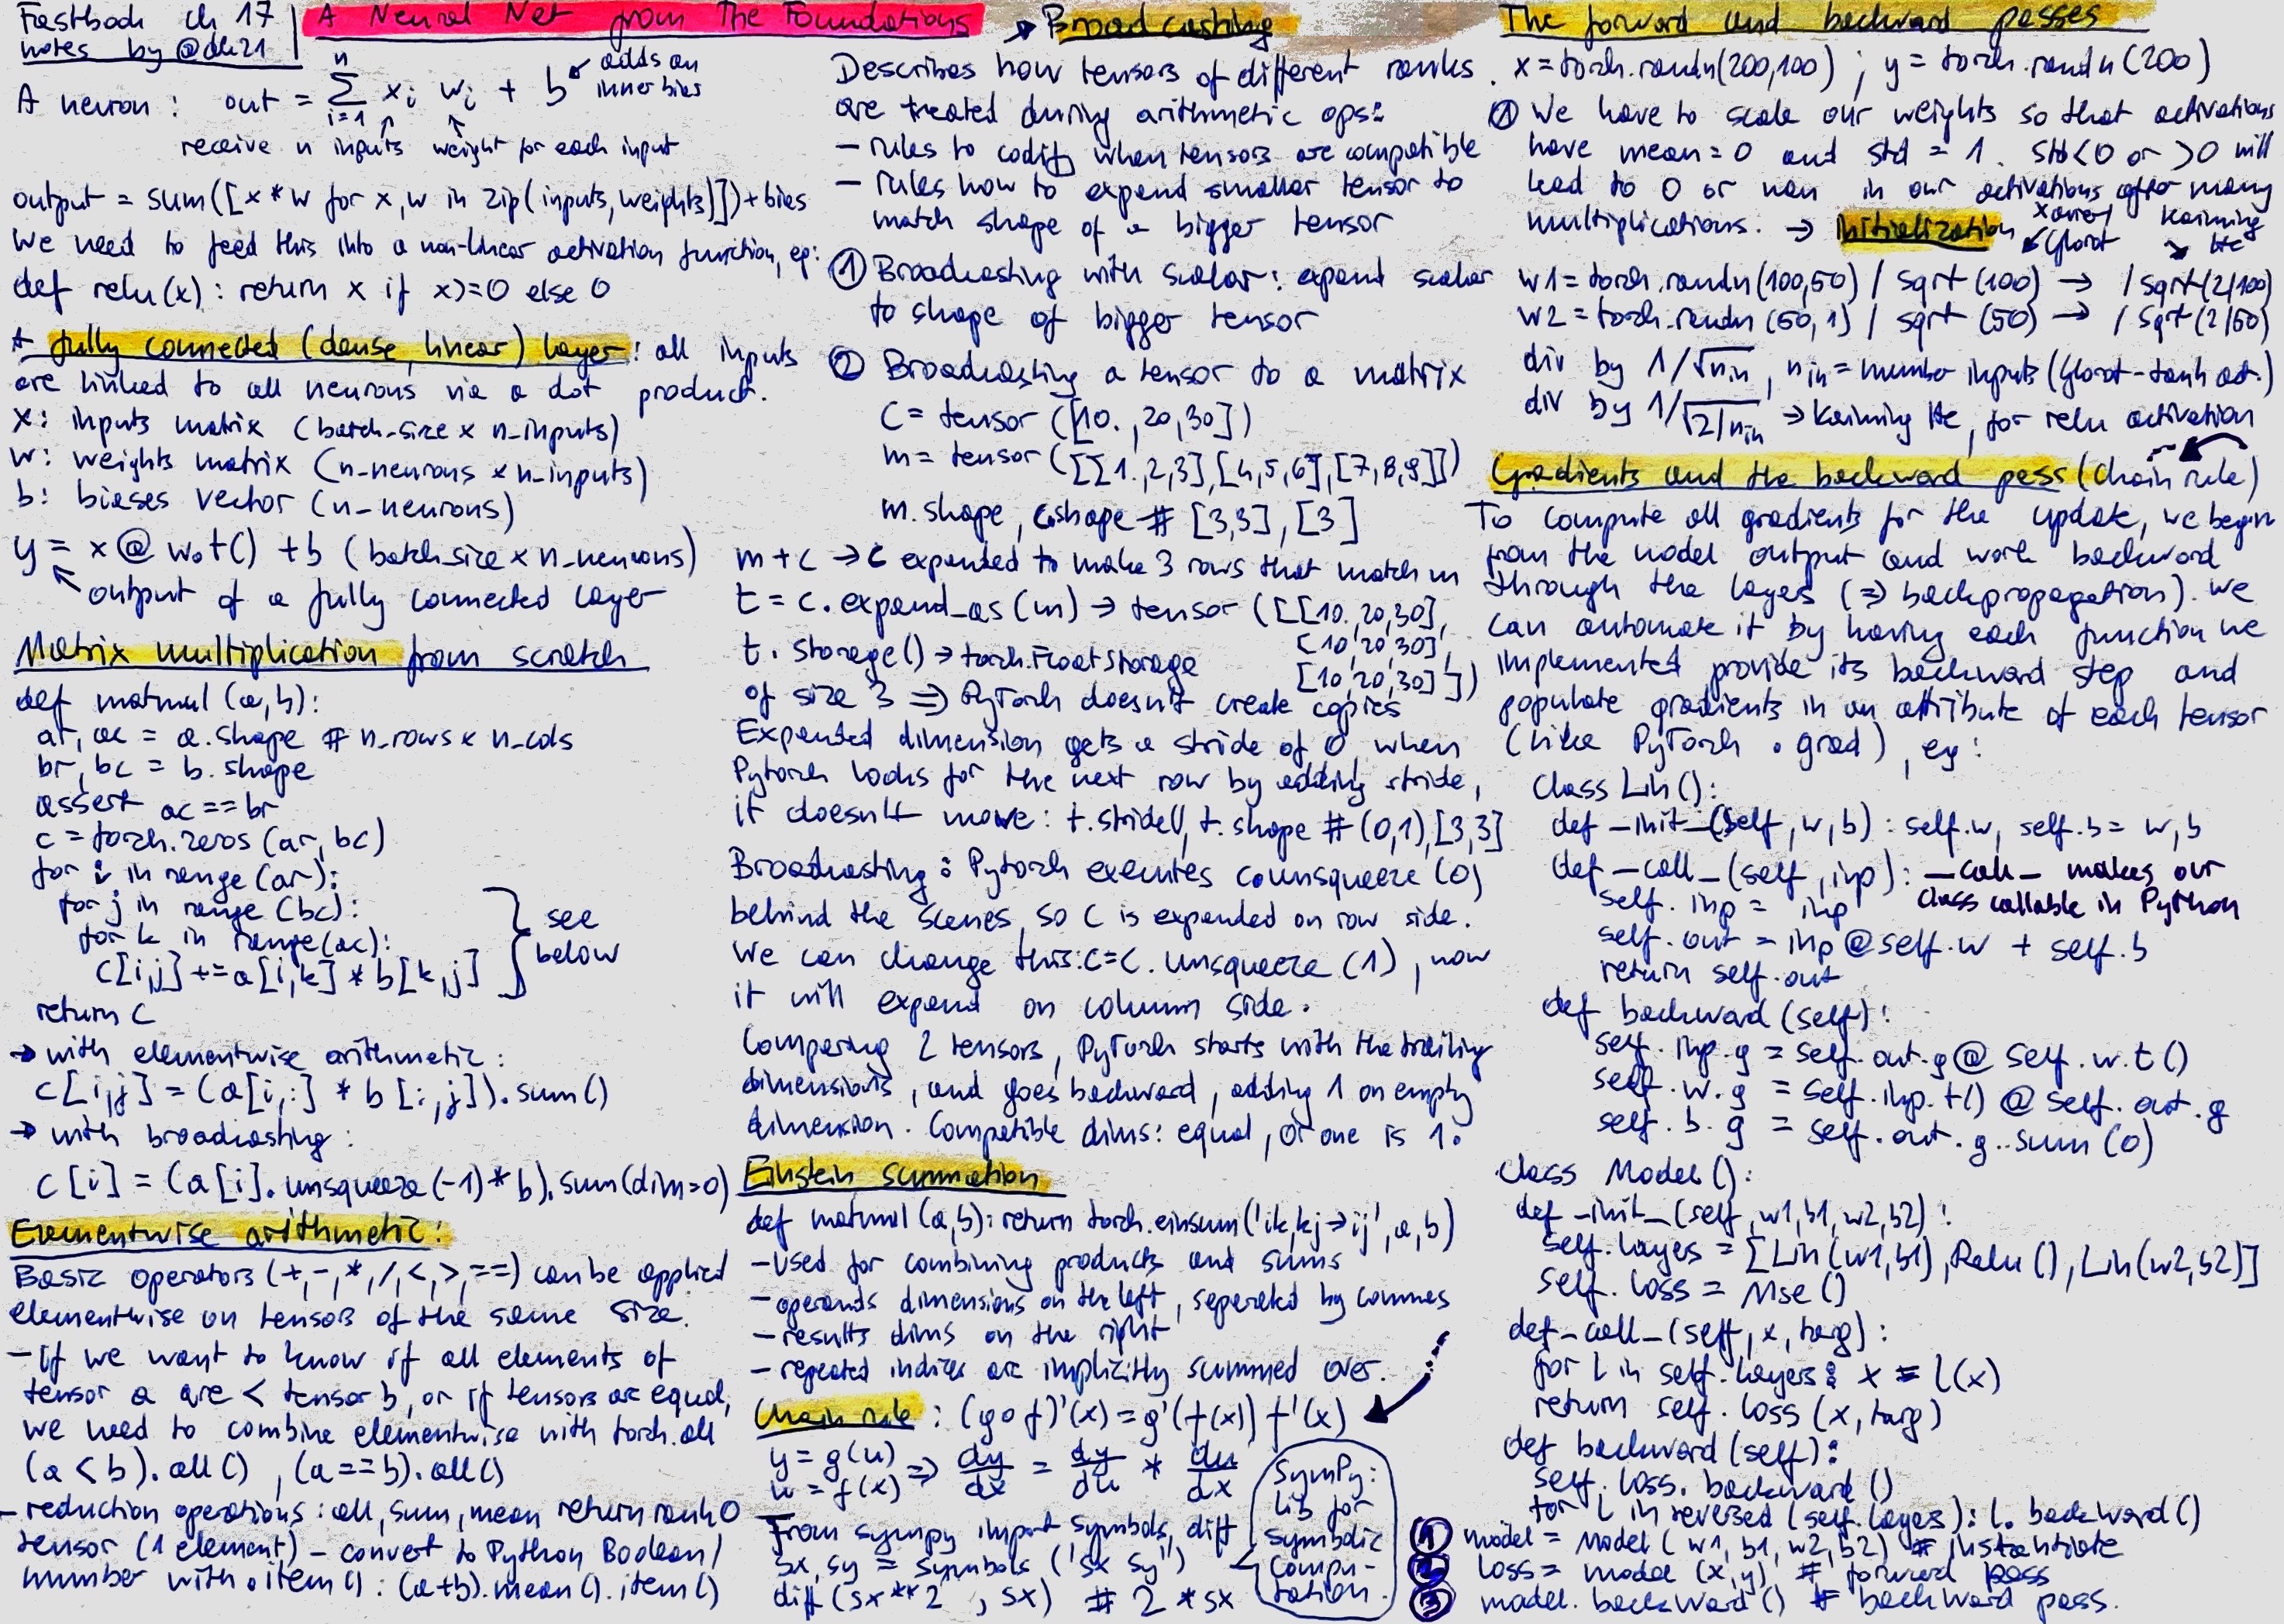 Fastbook ch 17
notes by @dk21
A Neural Net from The Foundations
A neuron: out = n Σ i=1 xi wi + b adds an inner bias
receive n inputs weight for each input
output = sum([x*w for x,w in zip(inputs,weights)])+bias
We need to feed this into a non-linear activation function, eg:
def relu(x): return x if x>=0 else 0
A fully connected (dense, linear) layer: all inputs
are linked to all neurons via a dot product.
x: inputs matrix (batch_size x n_inputs)
w: weights matrix (n_neurons x n_inputs)
b: biases vector (n_neurons)
y = x@ w.t() + b (batch_size x n_neurons)
output of a fully connected layer
Matrix multiplication from scratch
def matmul (a,b):
ar, ac = a.shape # n_rows x n_cols
br, bc = b.shape
assert ac == br
c = torch.zeros (ar, bc)
for i in range (ar):
for j in range (bc):
for k in range(ac):
c[i,j] += a[i,k] * b[k,j]
see
below
return c
→ with elementwise arithmetic:
c[i,j] = (a[i,:] * b[:,j]).sum()
→ with broadcasting:
c[i] = (a[i].unsqueeze(-1)*b).sum(dim=0)
Elementwise arithmetic:
Basic operators (+,-,*,/,<,>,==) can be applied
elementwise on tensors of the same size.
- If we want to know if all elements of
tensor a are < tensor b, or if tensors are equal,
we need to combine elementwise with torch.all
(a < b).all() , (a==b).all()
- reduction operations: all, sum, mean return rank 0
tensor (1 element) - convert to Python Boolean/
number with .item(): (a+b).mean().item()
→ Broadcasting
Describes how tensors of different ranks
are treated during arithmetic ops:
- rules to codify when tensors are compatible
- rules how to expend smaller tensor to
match shape of a bigger tensor
① Broadcasting with scalar: expend scalar
to shape of bigger tensor
② Broadcasting a tensor to a matrix
C = tensor ([10.,20,30])
m = tensor ([[1.,2,3],[4,5,6],[7,8,9]])
m.shape, c.shape # [3,3], [3]
m + c → c expended to make 3 rows that match m
t = c.expend_as (m) → tensor ([[10.,20,30],
[10,20,30],
[10,20,30]])
t.storage() → torch.FloatStorage
of size 3 ⇒ PyTorch doesn't create copies
Expended dimension gets a stride of 0 when
Pytorch looks for the next row by adding stride,
it doesn't move: t.stride(), t.shape # (0,1),[3,3]
Broadcasting: Pytorch executes c.unsqueeze(0)
behind the scenes, so C is expended on row side.
We can change this: c=c.unsqueeze (1), now
it will expend on column side.
Comparing 2 tensors, PyTorch starts with the trailing
dimensions, and goes backward, adding 1 on empty
dimension. Compatible dims: equal, or one is 1.
Einstein summation
def matmul (a,b): return torch.einsum('ik,kj→ij', a, b)
- used for combining products and sums
- operands dimensions on the left, seperated by commas
- results dims on the right
- repeated indices are implicitly summed over.
Chain rule: (g o f)'(x) = g'(f(x)) f'(x)
y = g(u)
u = f(x) ⇒ dy/dx = dy/du * du/dx
From sympy import symbols, diff
sx, sy = symbols ('sx sy')
diff (sx**2, sx) # 2*sx
SymPy:
lib for
symbolic
compu-
tation.
The forward and backward passes
x = torch.randn(200,100) ; y = torch.randn(200)
① We have to scale our weights so that activations
have mean=0 and std = 1. Std<0 or >0 will
lead to 0 or nan in our activations after many
multiplications. → Initialization
Xavier/ Glorot
Kaiming He
w1 = torch.randn(100,50) / sqrt (100) → / sqrt(2/100)
w2 = torch.randn (50,1) / sqrt (50) → / sqrt(2/50)
div by 1/√nin, nin = number inputs (Glorot-tanh act.)
div by 1/√2/nin → Kaiming He, for relu activation
Gradients and the backward pass (chain rule)
To compute all gradients for the update, we begin
from the model output and work backward
through the layes (⇒ backpropagation). We
can automate it by having each function we
implemented provide its backward step and
populate gradients in an attribute of each tensor
(like PyTorch .grad), eg:
Class Lin():
def _init_(self, w, b): self.w, self.b = w,b
def _call_(self, inp): _call_ makes our
class callable in Python
self.inp = inp
self.out = inp@self.w + self.b
return self.out
def backward (self):
self.inp.g = self.out.g@ self.w.t()
self.w.g = self.inp.t() @ self.out.g
self.b.g = self.out.g.sum (0)
Class Model():
def _init_(self, w1,b1,w2,b2):
self.layes = [Lin(w1,b1), Relu(), Lin(w2,b2)]
self.loss = Mse()
def _call_(self, x, targ):
for l in self.layers: x = l(x)
return self.loss (x,targ)
def backward (self):
self.loss.backward()
for l in reversed (self.layes): l.backward()
① model = Model (w1, b1, w2, b2) # instantiate
② loss = model (x,y) # forward pass
③ model.backward() # backward pass.